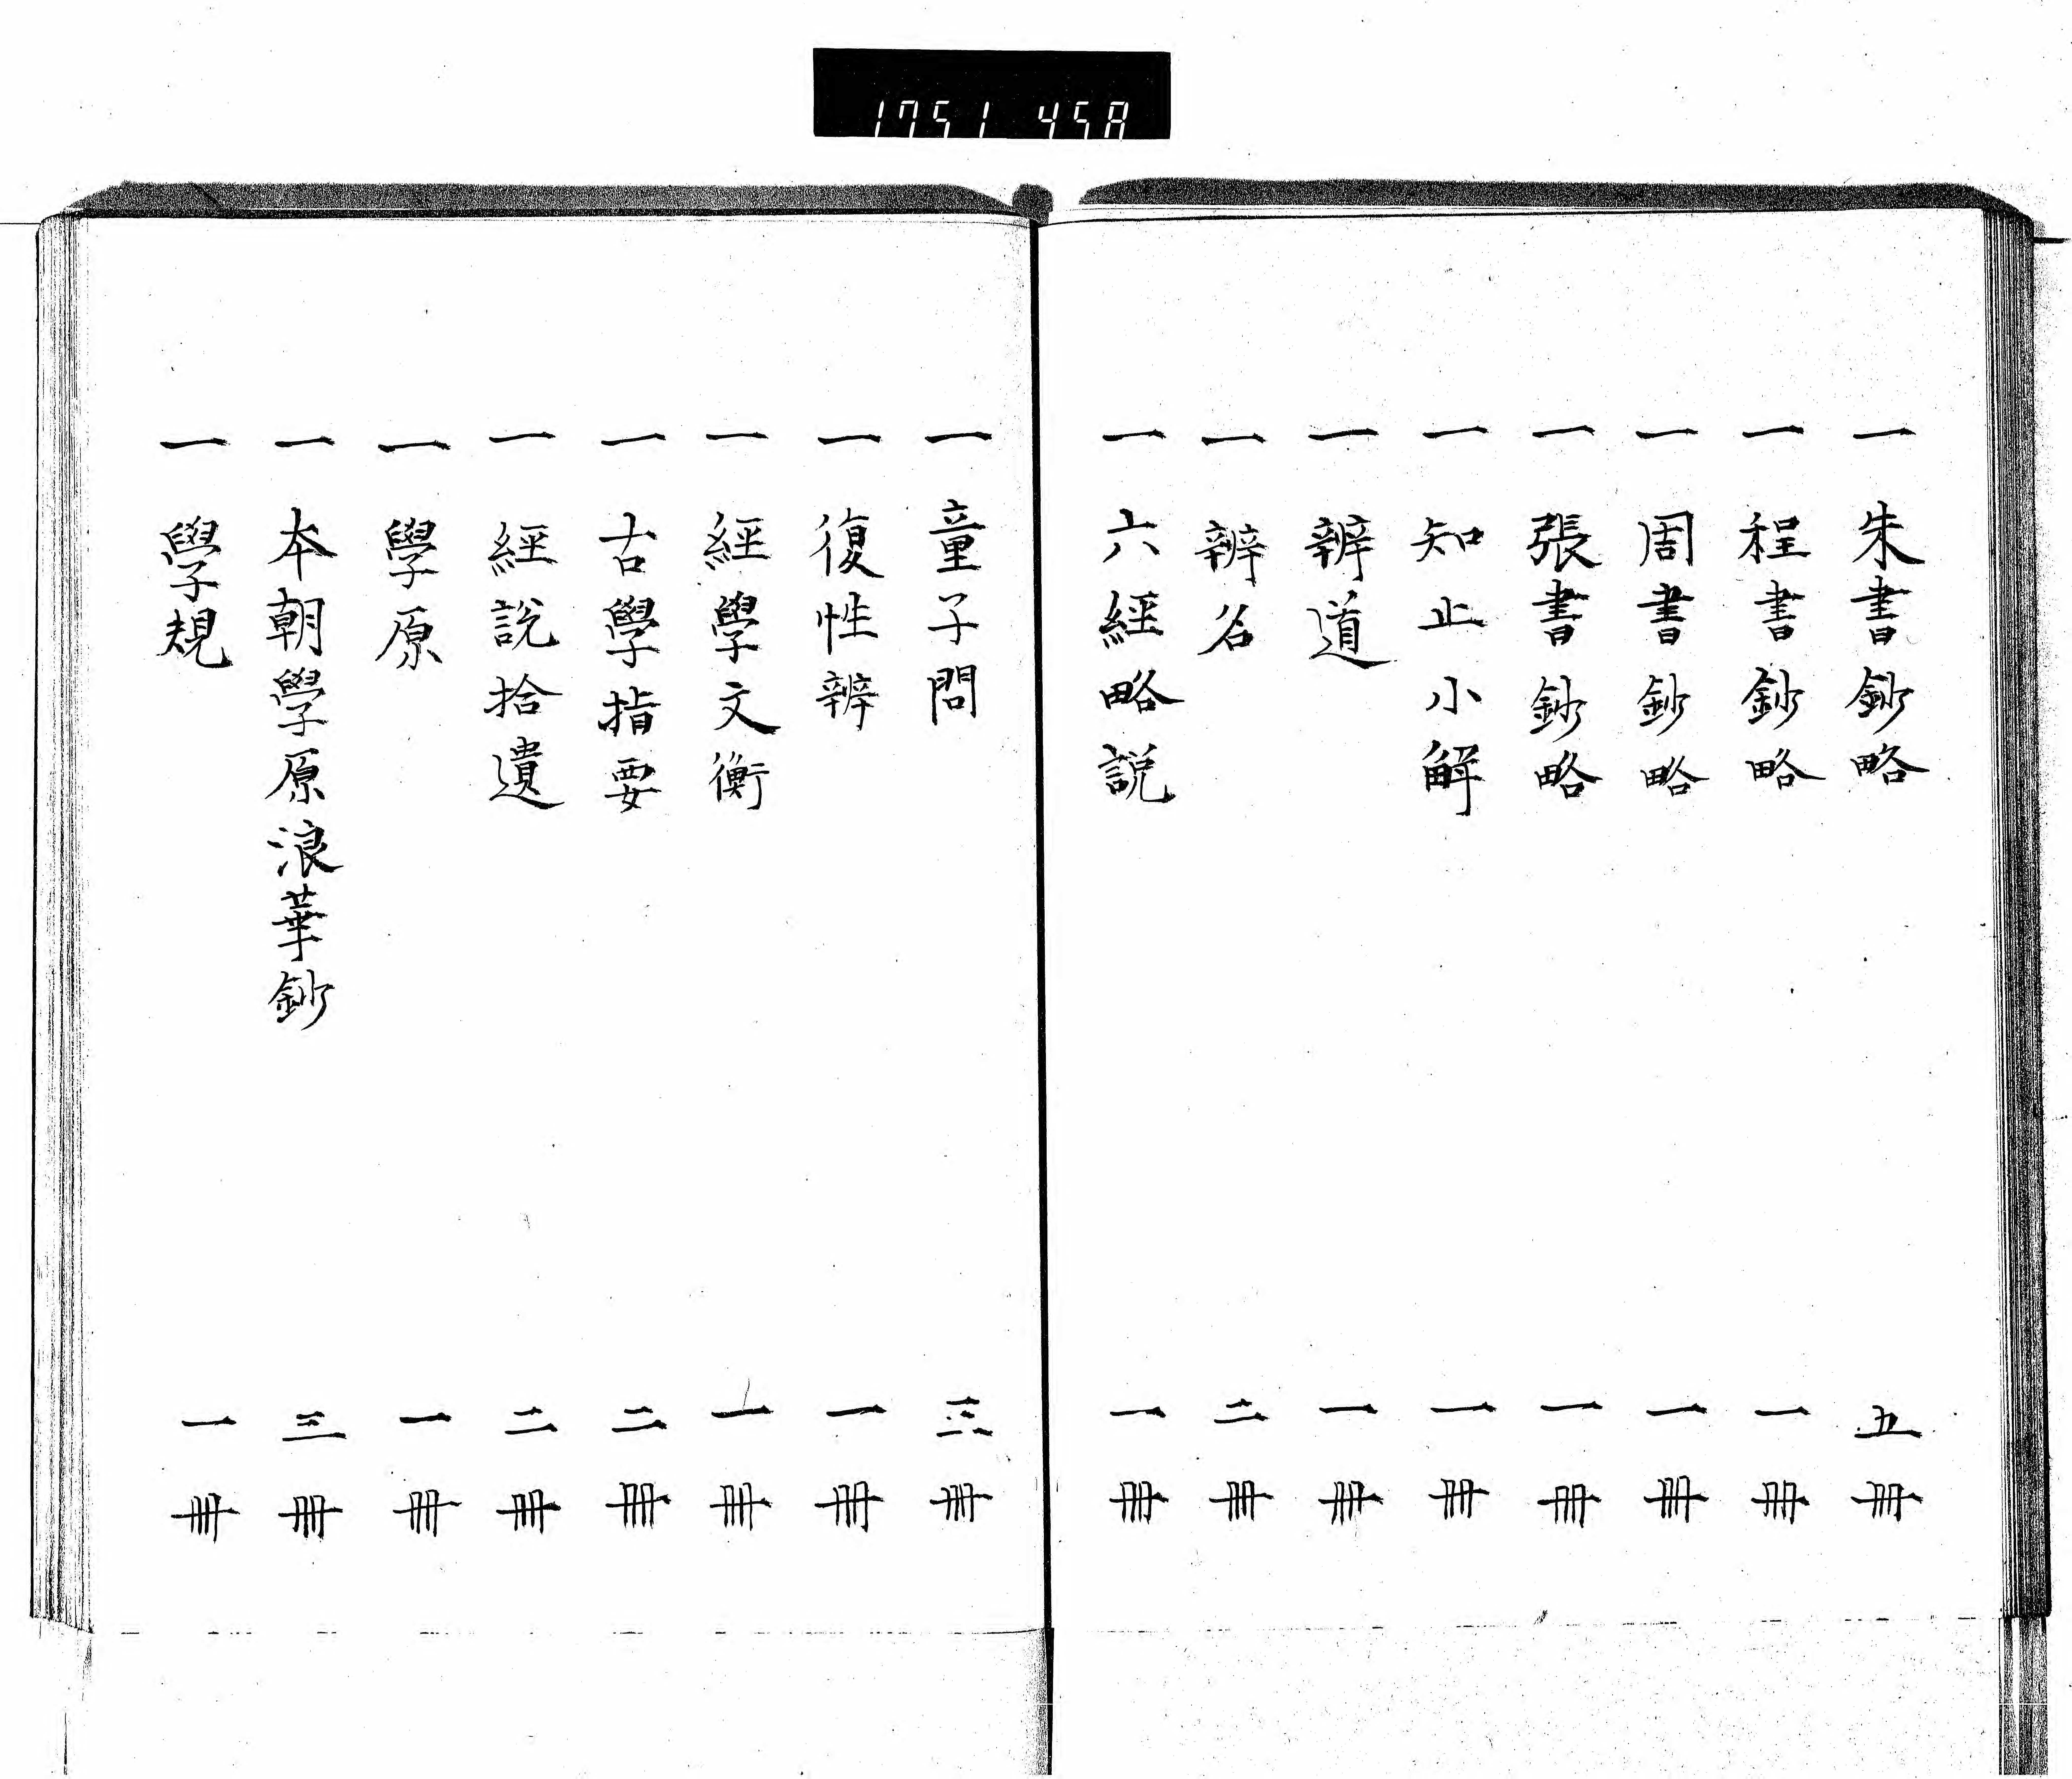 1751 458
一 朱書鈔略 五冊
一 程書鈔略 一冊
一 周書鈔略 一冊
一 張書鈔略 一冊
一 知止小解 一冊
一 辨道 一冊
一 辨名 二冊
一 六經略説 一冊
一 童子問 三冊
一 復性辨 一冊
一 經學文衡 一冊
一 古學指要 二冊
一 經説拾遺 二冊
一 學原 一冊
一 本朝學原浪華鈔 三冊
一 學規 一冊